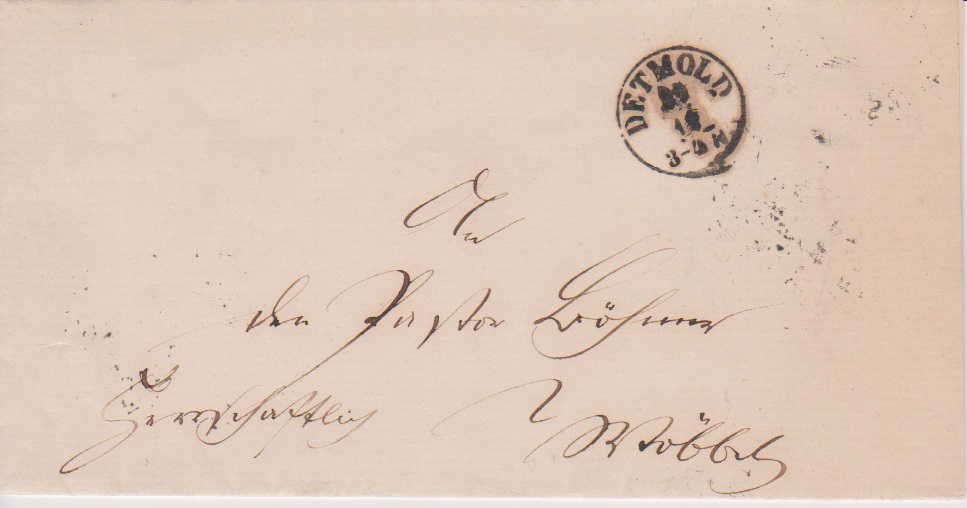 DETMOLD
3-4 N
An
den Pastor Böhmer
Herrschaftlich
Wöbbel